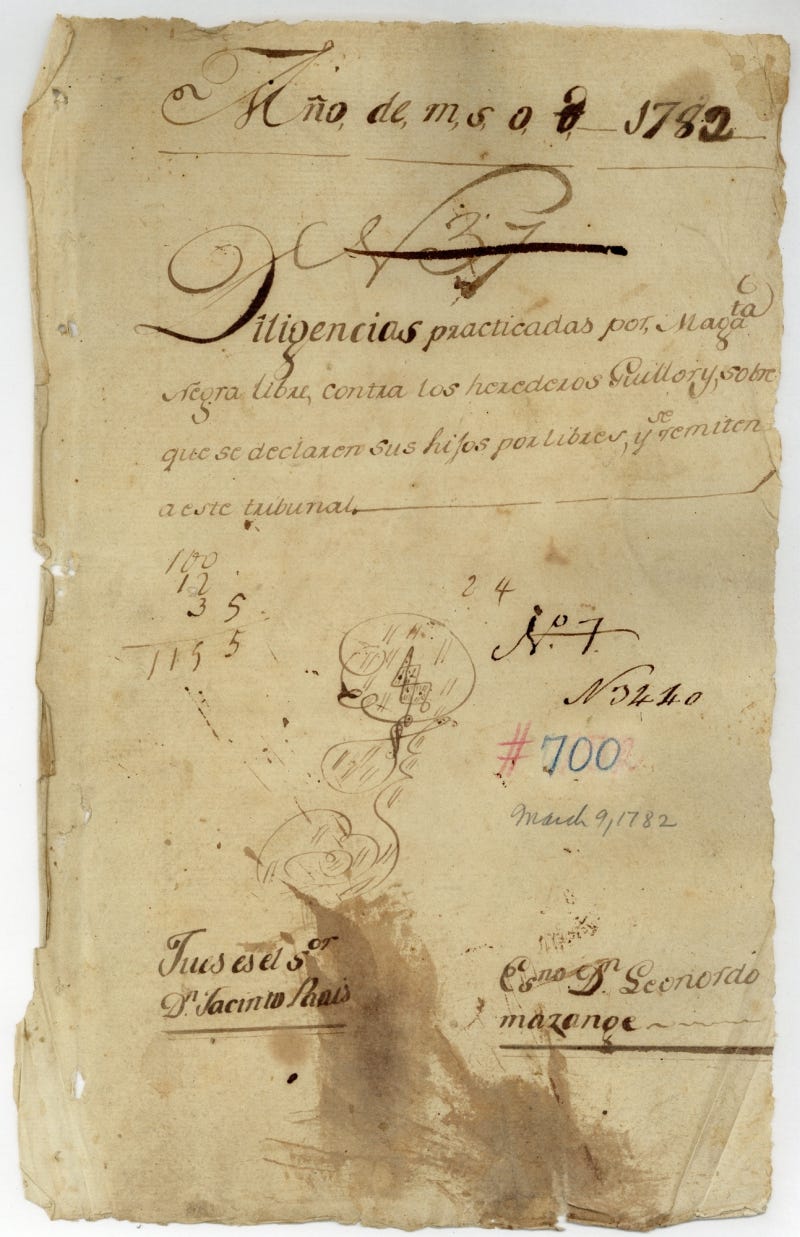 Año, de, m, s, o, d 1782
N 37
Diligencias practicadas por, Maga^ta
Negra libre, contra los herederos Guillory, sobre
que se declaren sus hijos por libres, y se remiten
a este tribunal.
100
12
3 5
115 5
2 4
N.º 7
N 3440
#700
March 9, 1782
Jues es el S^or
D^n Jacinto Panis
Es^no D^n Leonardo
mazange